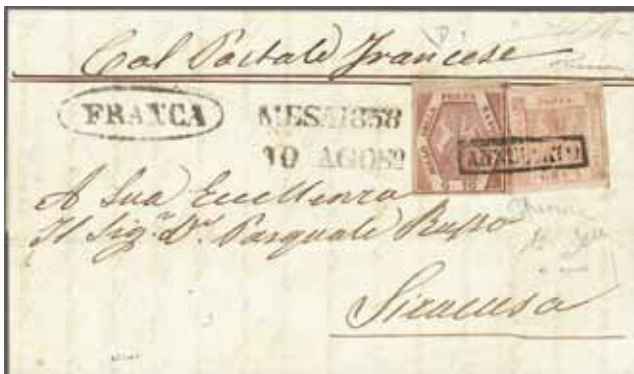 Col Postale Francese
FRANCA
MES. 1858
10 AGOSº
ANNULLATO
A Sua Eccellenza
Il Sigr. Dr. Pasquale Russo
Siracusa